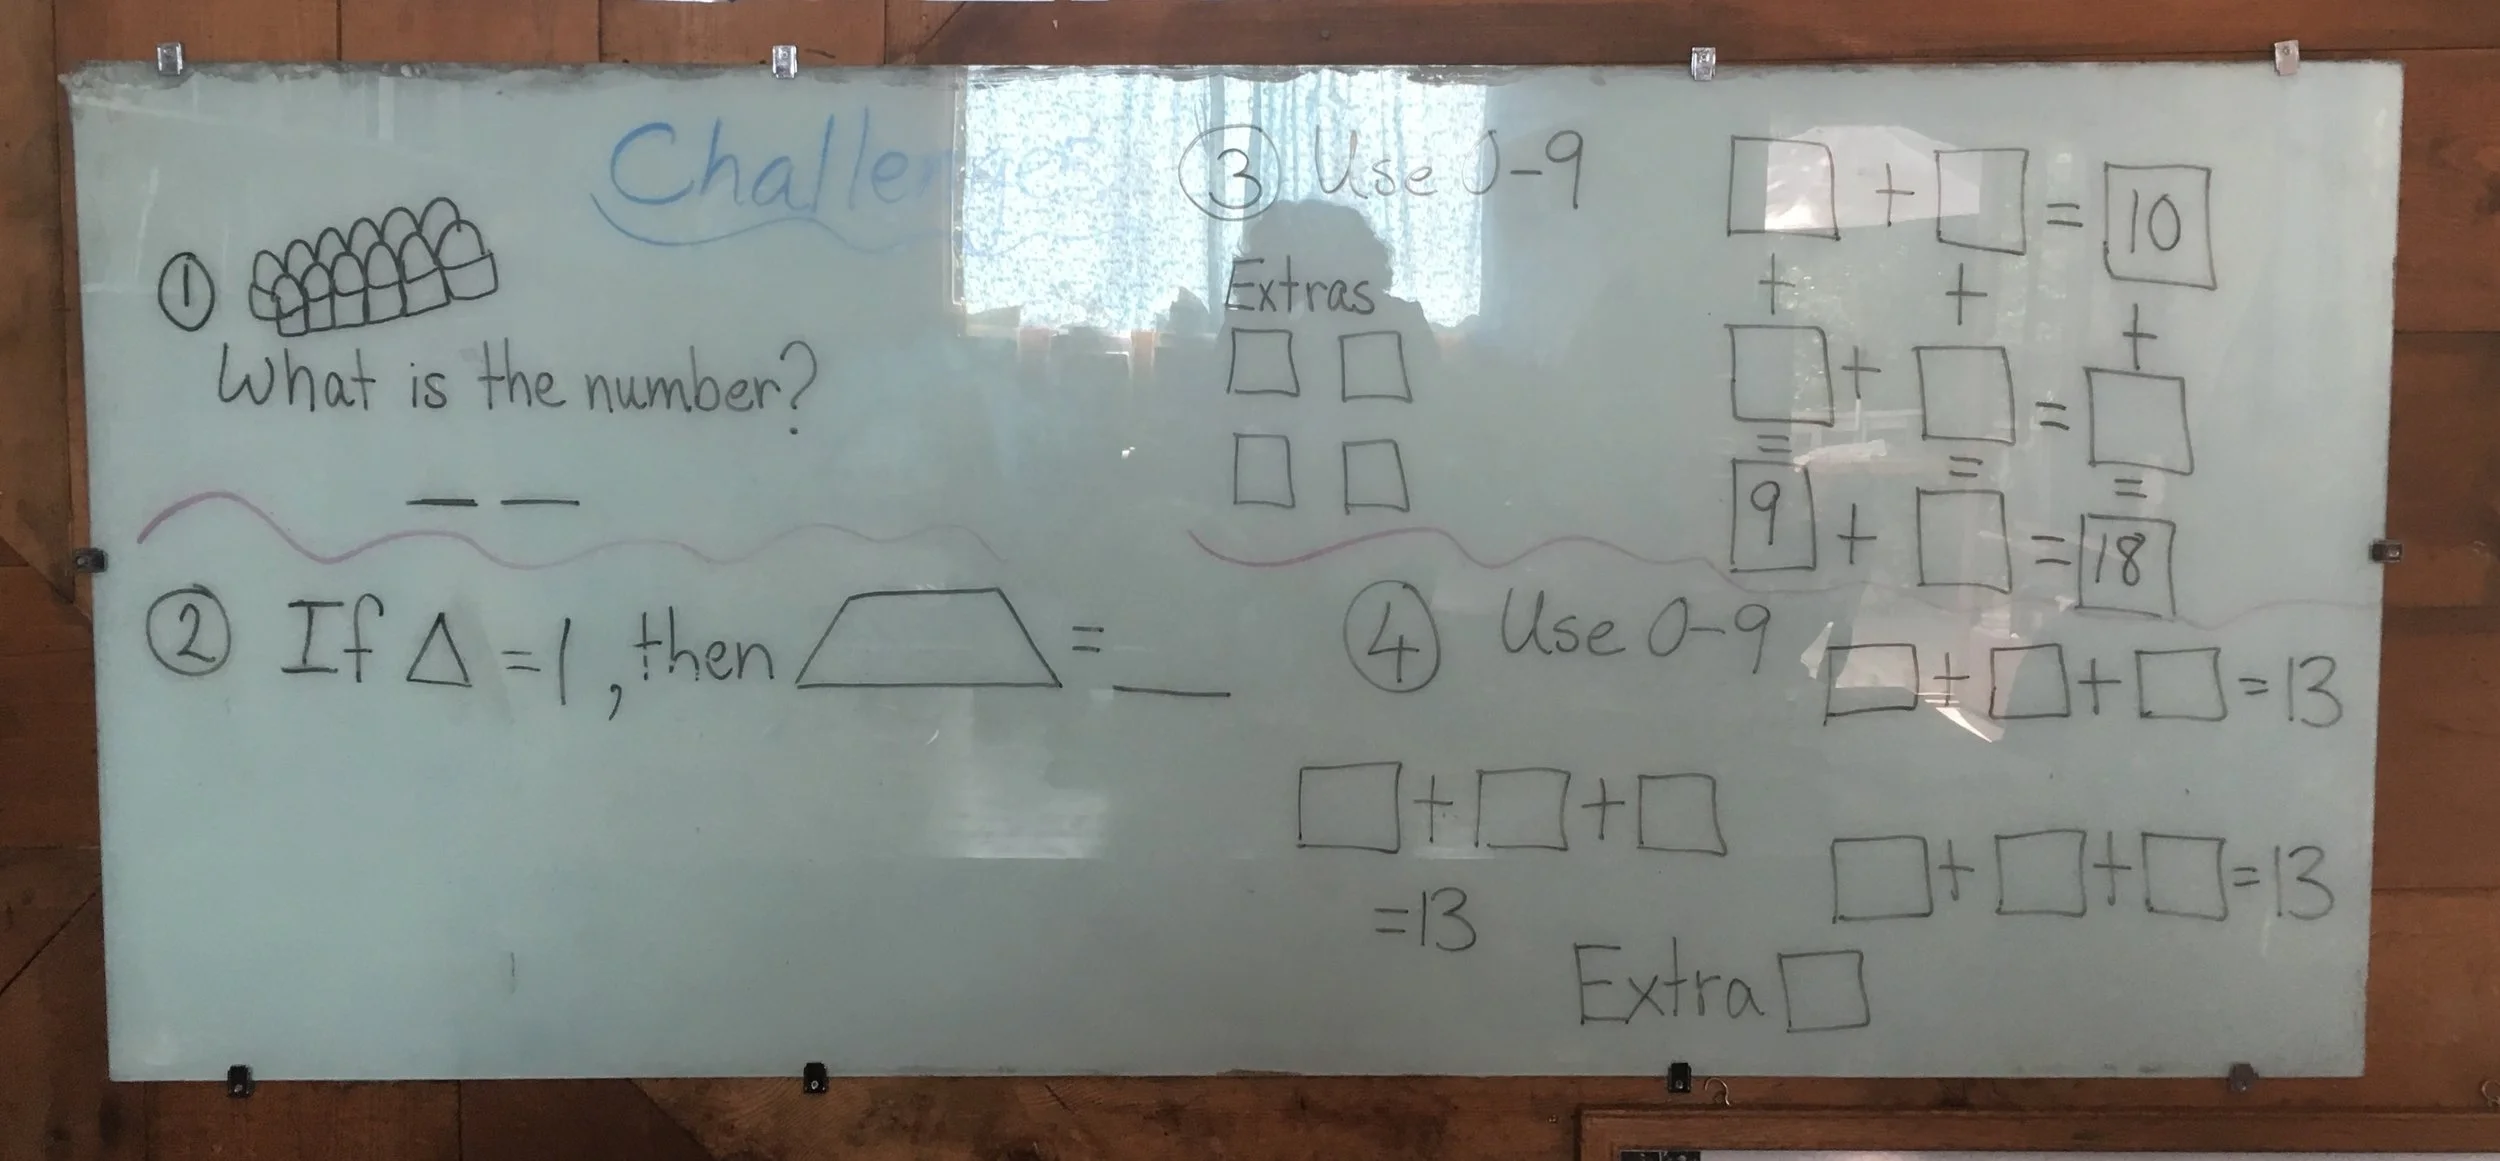 Challenges
①
What is the number?
_ _
② If △ = 1, then ⏢ = _
③ Use 0-9
Extras
□ □
□ □
□ + □ = 10
+ + +
□ + □ = □
= = =
9 + □ = 18
④ Use 0-9
□ + □ + □ = 13
□ + □ + □
=13
□ + □ + □ = 13
Extra □